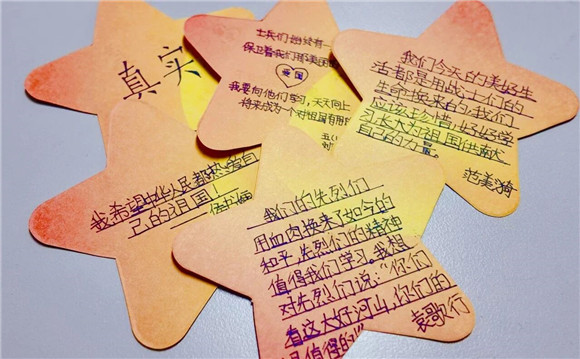 真实
士兵们
保卫着我们
爱国
我要向他们学习，天天向上
将来成为一个对祖国有用
五（
我们今天的美好生
活都是用战士们的
生命换来的，我们
应该珍惜，好好学
习长大为祖国供献
自己的力量。
范美漪
我希望中华人民都热爱自
己的祖国！
我们的先烈们
用血肉换来了如今的
和平，先烈们的精神
值得我们学习。我想
对先烈们说：“你们
看这大好河山，你们的
是值得的！”
袁歌行